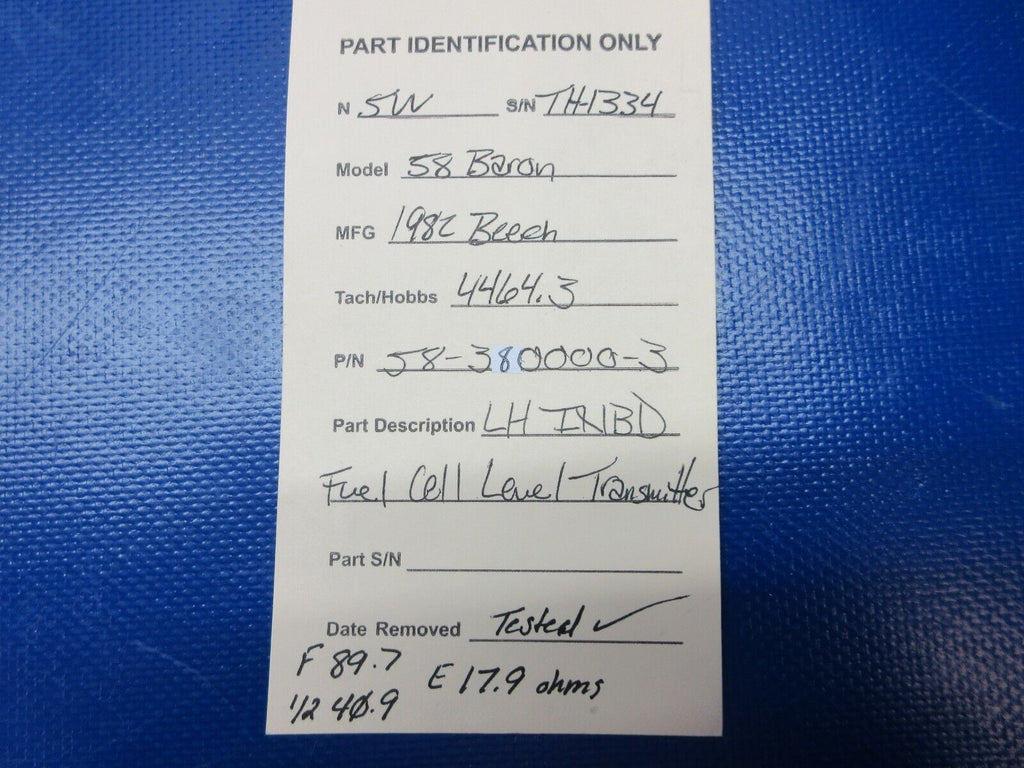 PART IDENTIFICATION ONLY
N 5W S/N TH-1334
Model 58 Baron
MFG 1982 Beech
Tach/Hobbs 4464.3
P/N 58-380000-3
Part Description LH INBD
Fuel Cell Level Transmitter
Part S/N
Date Removed Tested ✓
F 89.7 E 17.9 ohms
1/2 40.9